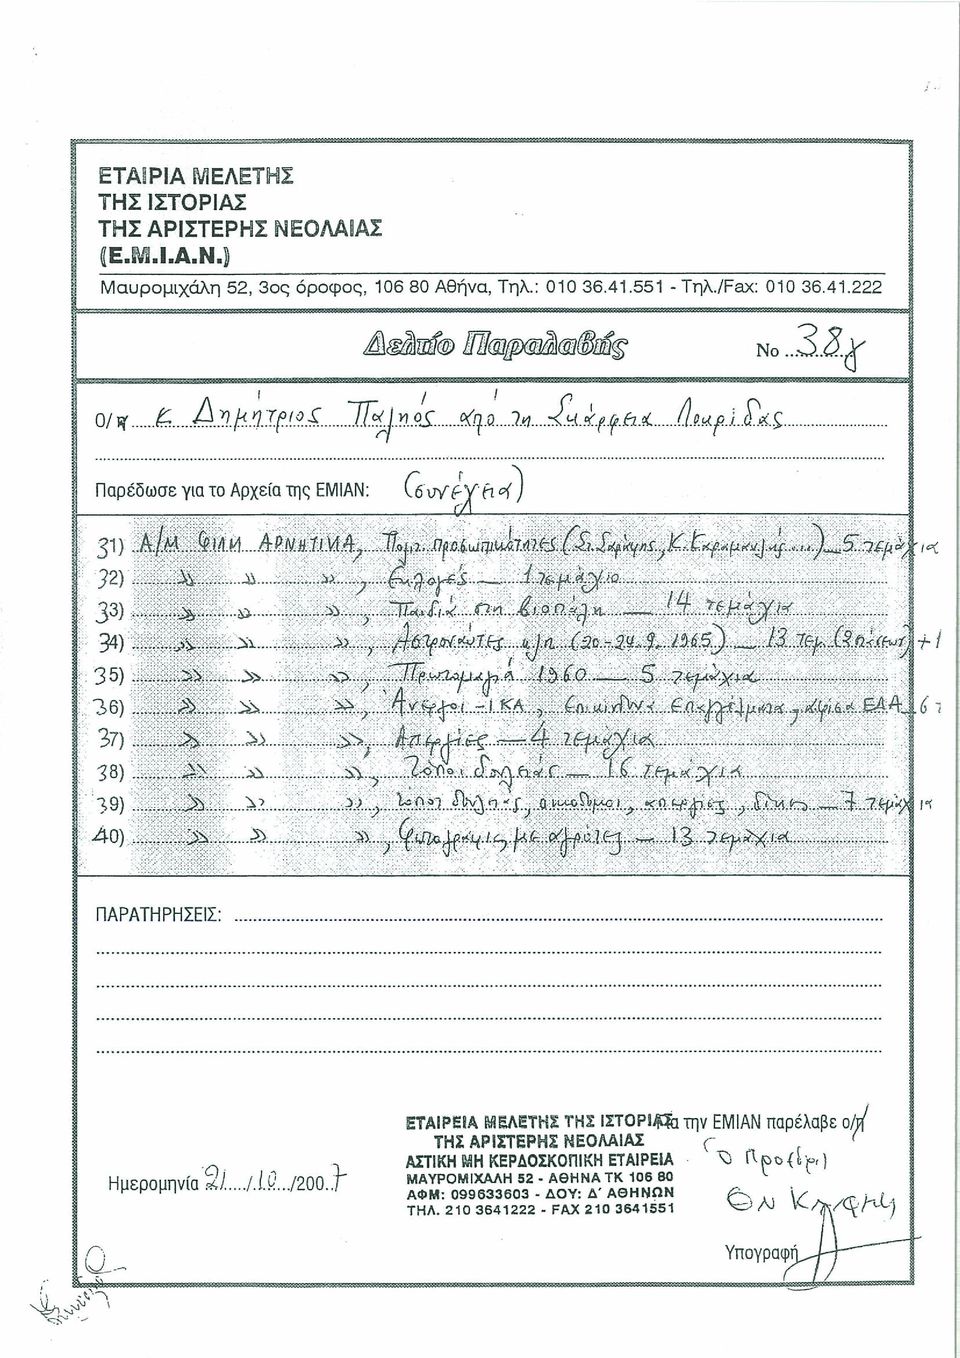 ΕΤΑΙΡΙΑ ΜΕΛΕΤΗΣ
ΤΗΣ ΙΣΤΟΡΙΑΣ
ΤΗΣ ΑΡΙΣΤΕΡΗΣ ΝΕΟΛΑΙΑΣ
(Ε.Μ.Ι.Α.Ν.)
Μαυρομιχάλη 52, 3ος όροφος, 106 80 Αθήνα, Τηλ.: 010 36.41.551 - Τηλ./Fax: 010 36.41.222
Δελτίο Παραλαβής Νο 38γ
Ο/η κ. Δημήτριος από τη Σκάρφεια Λοκρίδας
Παρέδωσε για το Αρχεία της ΕΜΙΑΝ: (συνέχεια)
31) Α/Μ ΦΙΛΜ ΑΡΝΗΤΙΚΑ, Πολιτ. προσωπικότητες (Στ. Σαράφης, Κ. Καραμανλής...) 5 τεμάχια
32) » » », Εκλογές — 1 τεμάχιο
33) » » », Παιδιά στη βιοπάλη — 14 τεμάχια
34) » » », Αστροναύτες κ.λ.π. (20-24.9.1965) — 13 τεμ. (2 πόστερ) +1
35) » » », Πρωτομαγιά 1960 — 5 τεμάχια
36) » » », Άνεργοι - ΙΚΑ, Επικίνδυνα επαγγέλματα, αφίσα ΕΔΑ 6 τ
37) » » », Απεργίες — 4 τεμάχια
38) » » », Τόποι δουλειάς — 16 τεμάχια
39) » » », τόποι δουλειάς, οικοδόμοι, απεργίες, δίκες — 7 τεμάχια
40) » » », Φωτογραφίες με αγρότες — 13 τεμάχια
ΠΑΡΑΤΗΡΗΣΕΙΣ:
ΕΤΑΙΡΕΙΑ ΜΕΛΕΤΗΣ ΤΗΣ ΙΣΤΟΡΙΑΣ Για την ΕΜΙΑΝ παρέλαβε ο/η
ΤΗΣ ΑΡΙΣΤΕΡΗΣ ΝΕΟΛΑΙΑΣ
ΑΣΤΙΚΗ ΜΗ ΚΕΡΔΟΣΚΟΠΙΚΗ ΕΤΑΙΡΕΙΑ
ΜΑΥΡΟΜΙΧΑΛΗ 52 - ΑΘΗΝΑ ΤΚ 106 80
ΑΦΜ: 099633603 - ΔΟΥ: Δ' ΑΘΗΝΩΝ
ΤΗΛ. 210 3641222 - FAX 210 3641551
Ημερομηνία 21/10/2007
Υπογραφή